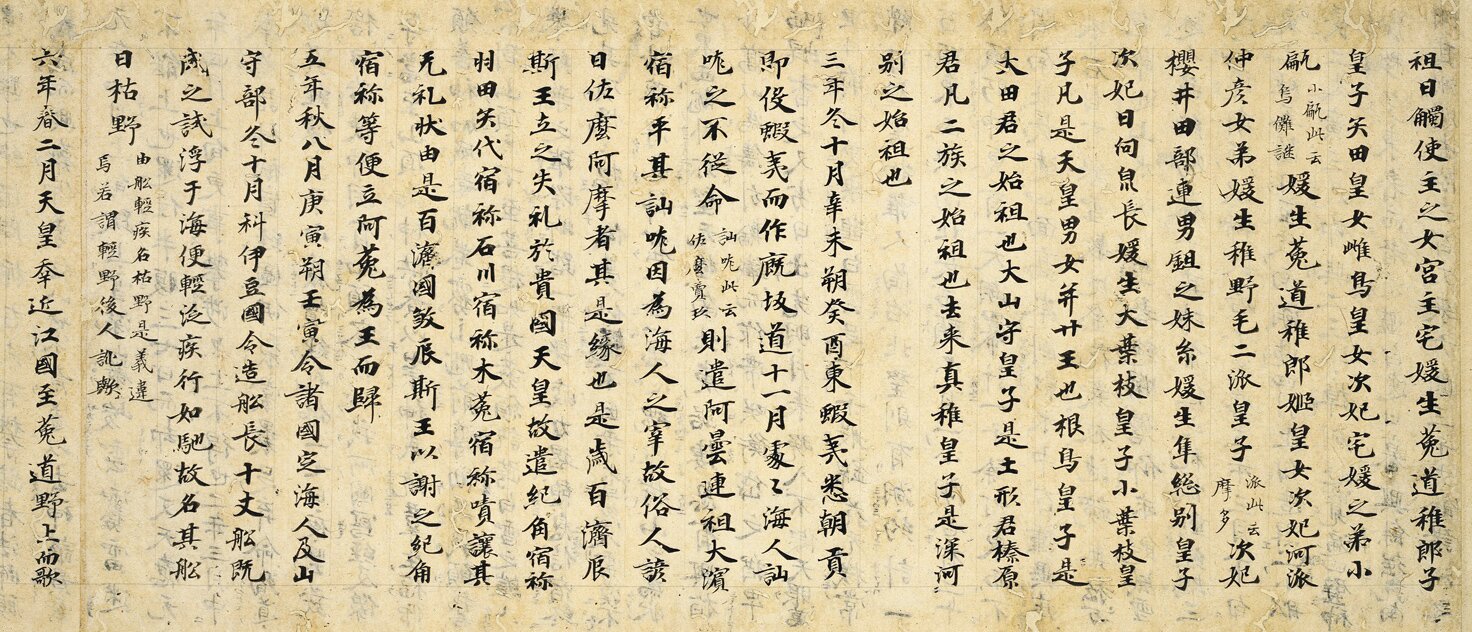 祖日觸使主之女宮主宅媛生菟道稚郎子
皇子矢田皇女雌鳥皇女次妃宅媛之弟小
甂小甂此云烏儺謎媛生菟道稚郎姬皇女次妃河派
仲彦女弟媛生稚野毛二派皇子派此云摩多次妃
櫻井田部連男鉏之妹糸媛生隼総別皇子
次妃日向泉長媛生大葉枝皇子小葉枝皇
子凡是天皇男女并廿王也根鳥皇子是
大田君之始祖也大山守皇子是土形君榛原
君凡二族之始祖也去来真稚皇子是深河
別之始祖也
三年冬十月辛未朔癸酉東蝦夷悉朝貢
即伇蝦夷而作厩坂道十一月處〻海人訕
哤之不從命訕哤此云佐麼賣玖則遣阿曇連祖大濱
宿祢平其訕哤因為海人之宰故俗人諺
曰佐麼阿摩者其是縁也是歳百濟辰
斯王立之失礼於貴國天皇故遣紀角宿祢
羽田矢代宿祢石川宿祢木菟宿祢嘖讓其
无礼状由是百濟國敘辰斯王以謝之紀角
宿祢等便立阿菟為王而歸
五年秋八月庚寅朔壬寅令諸國定海人及山
守部冬十月科伊豆國令造舩長十丈舩既
成之試浮于海便輕泛疾行如馳故名其舩
曰枯野由舩輕疾名枯野是義違焉若謂輕野後人訛歟
六年春二月天皇幸近江國至菟道野上而歌